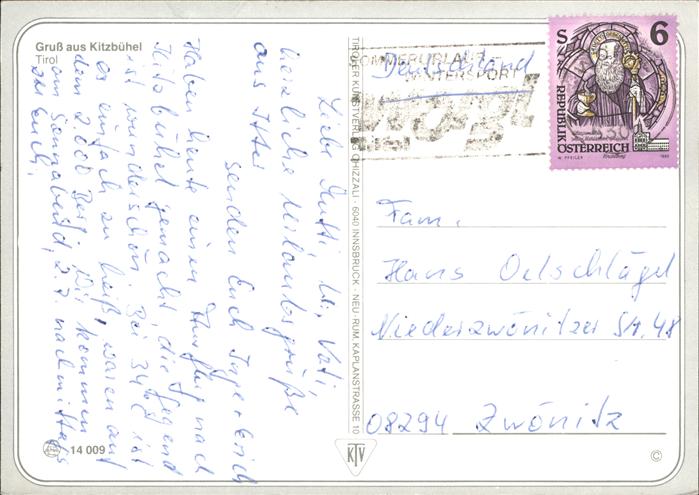 Gruß aus Kitzbühel
Tirol
Liebe Mutti, li. Vati,
herzliche Urlaubsgrüße
aus Itter
senden Euch Inge+Erich
Haben heute einen Ausflug nach
Kitzbühel gemacht, die Gegend
ist wunderschön. Bei 34°C ist
es einfach zu heiß, waren auf
dem 2.000 Berg. Wir kommen
am Sonnabend, 2.7. nachmittags
zu Euch.
14 009
TIROLER KUNSTVERLAG CHIZZALI · 6040 INNSBRUCK · NEU-RUM, KAPLANSTRASSE 10
KTV
SOMMERURLAUB
WINTERSPORT
Deutschland
S 6
REPUBLIK
ÖSTERREICH
Fam.
Hans Oelschlägel
Niederzwönitzer Str. 48
08294 Zwönitz
©